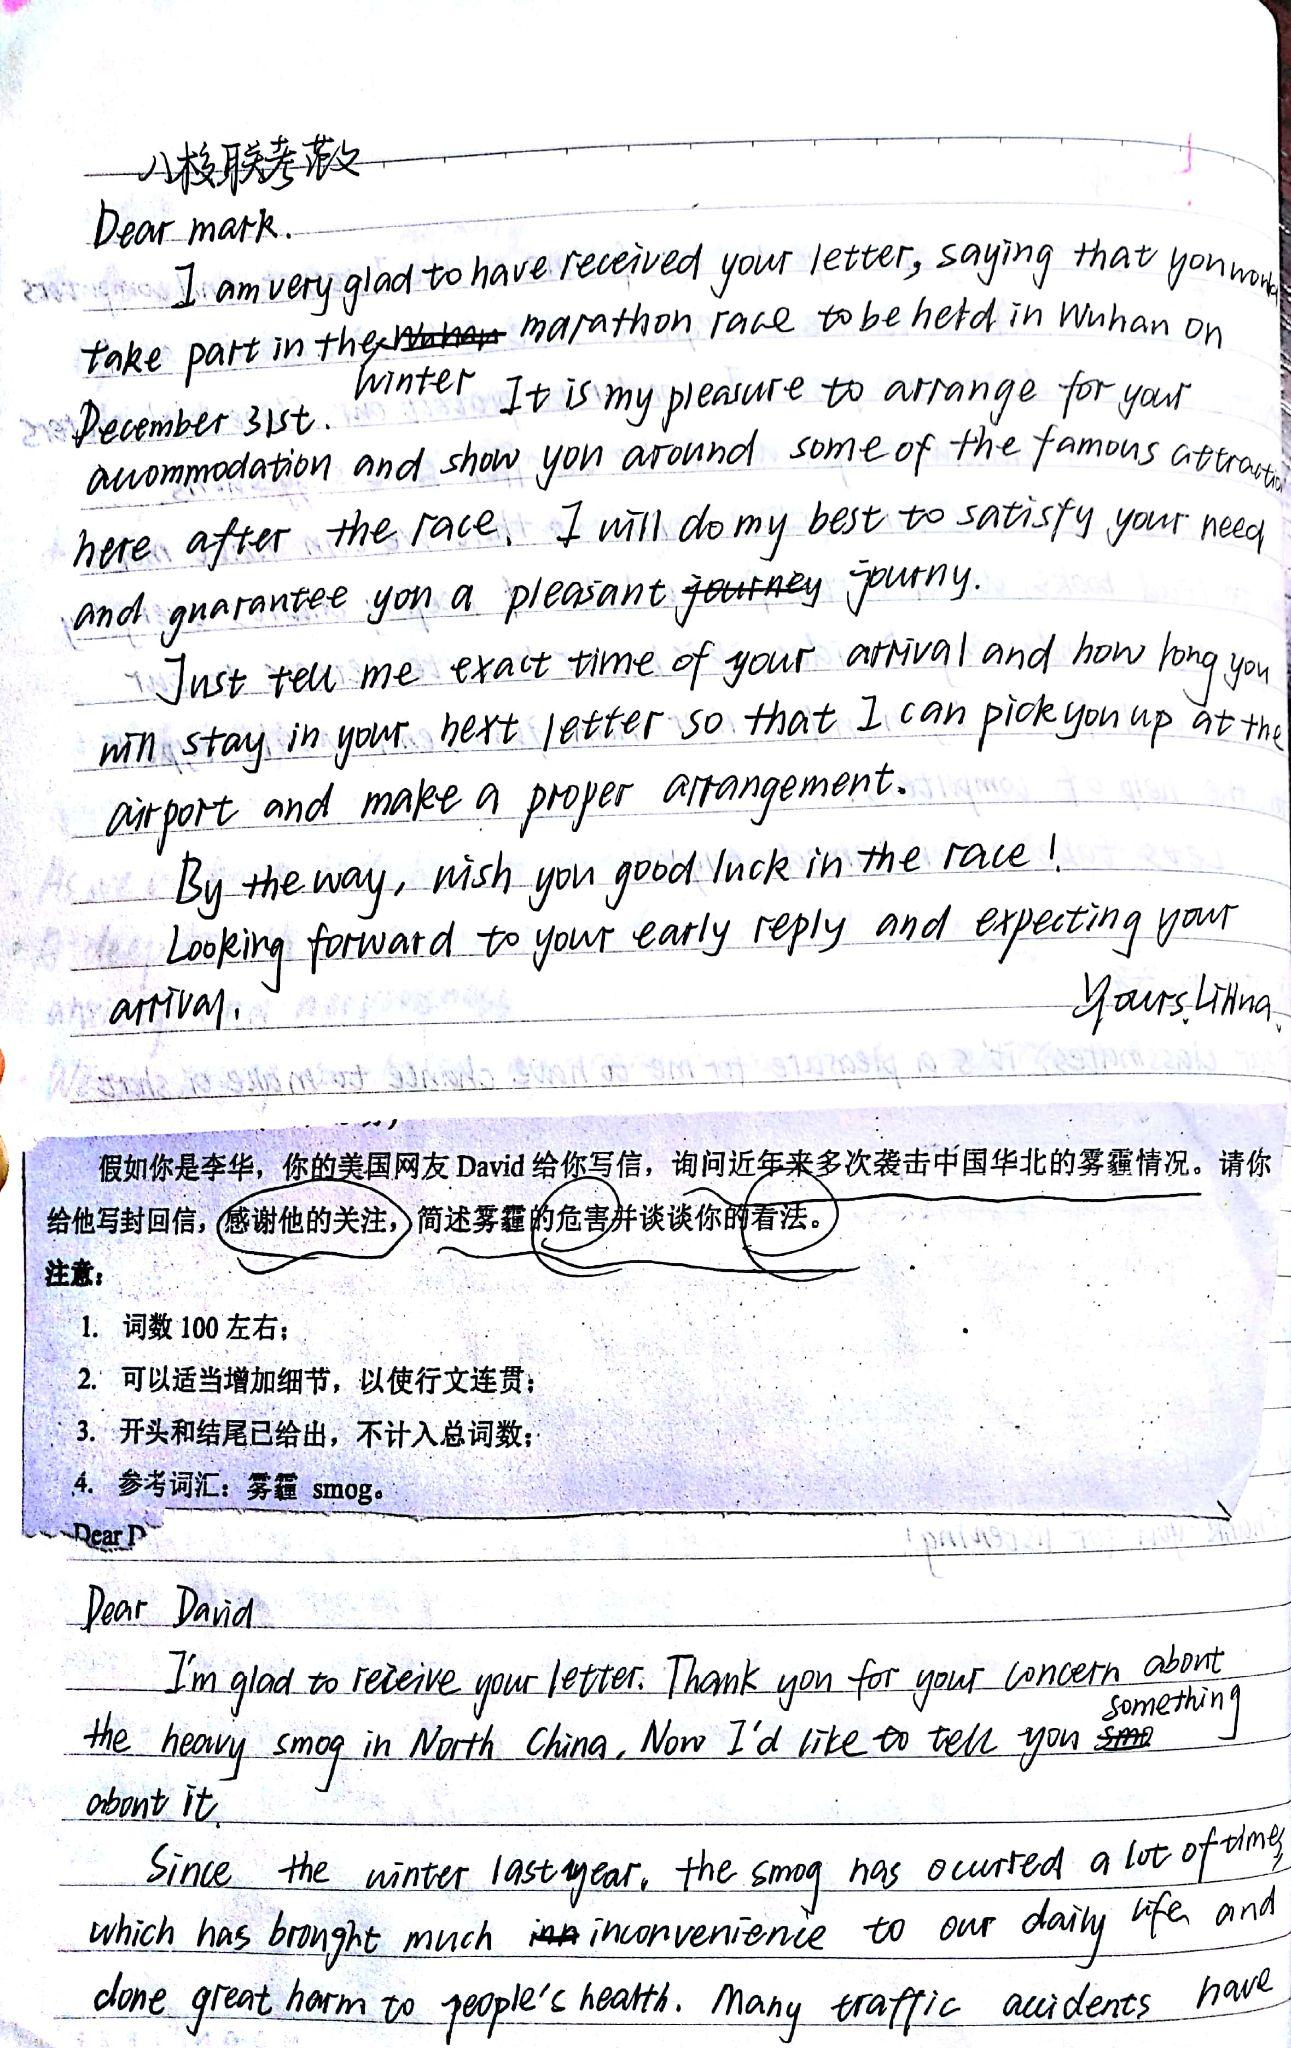 八校联考范文
Dear mark.
I am very glad to have received your letter, saying that you would
take part in the winter marathon race to be held in Wuhan on
December 31st. It is my pleasure to arrange for your
accommodation and show you around some of the famous attractio
here after the race. I will do my best to satisfy your need
and guarantee you a pleasant journey journy.
Just tell me exact time of your arrival and how long you
will stay in your next letter so that I can pick you up at the
airport and make a proper arrangement.
By the way, wish you good luck in the race!
Looking forward to your early reply and expecting your
arrival.
Yours, LiHua.
假如你是李华，你的美国网友 David 给你写信，询问近年来多次袭击中国华北的雾霾情况。请你
给他写封回信，感谢他的关注，简述雾霾的危害并谈谈你的看法。
注意：
1. 词数 100 左右；
2. 可以适当增加细节，以使行文连贯；
3. 开头和结尾已给出，不计入总词数；
4. 参考词汇：雾霾 smog。
Dear D
Dear David
I'm glad to receive your letter. Thank you for your concern about
the heavy smog in North China. Now I'd like to tell you something
about it.
Since the winter last year, the smog has ocurred a lot of times,
which has brought much inconvenience to our daily life and
done great harm to people's health. Many traffic accidents have